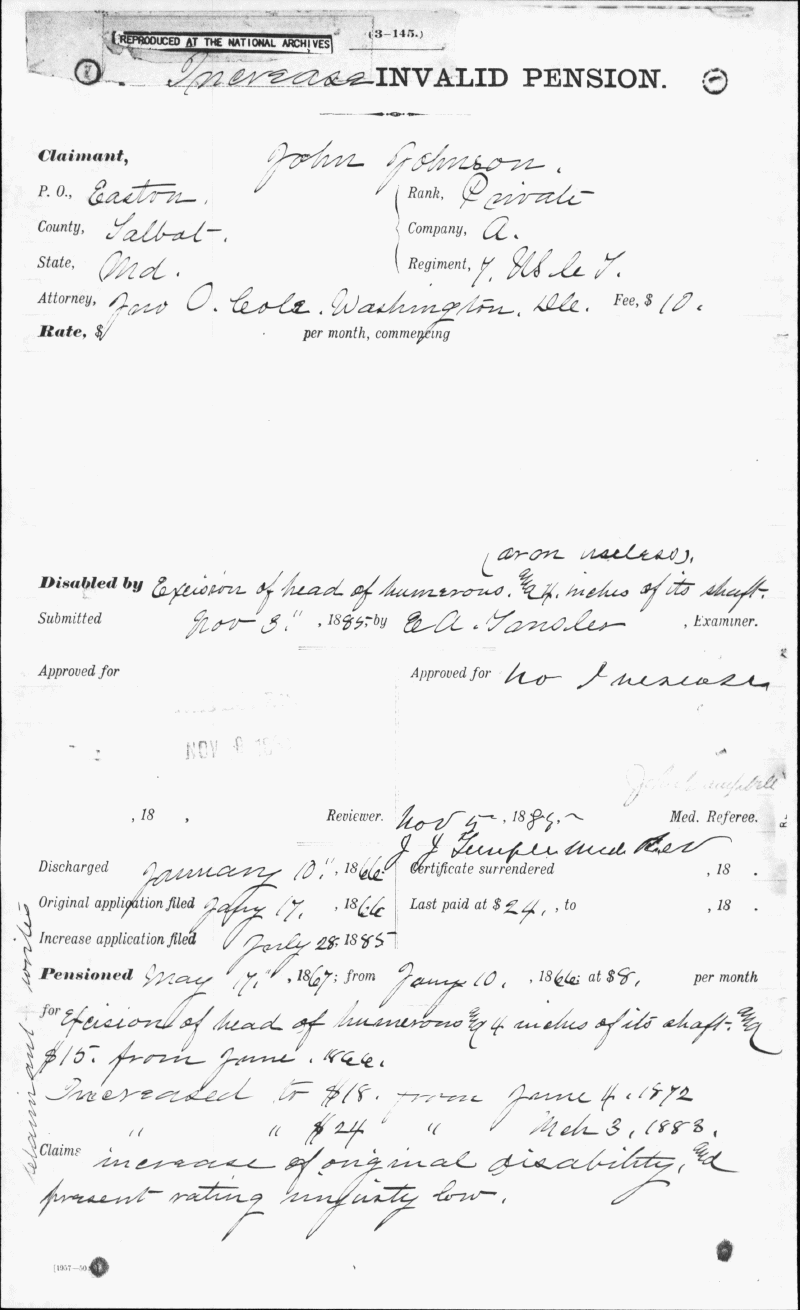 REPRODUCED AT THE NATIONAL ARCHIVES
(3–145.)
Increase INVALID PENSION.
Claimant, John Johnson.
P. O., Easton.
Rank, Private
County, Talbot.
Company, A.
State, Md.
Regiment, 7, US C T.
Attorney, Jno O. Cole. Washington, DC. Fee, $ 10.
Rate, $ per month, commencing
(arm useless).
Disabled by Excision of head of humerous. and 4 inches of its shaft.
Submitted Nov 3", 1885 by E A. , Examiner.
Approved for
Approved for No Increase
NOV
, 18 , Reviewer.
Nov 5, 1885. Med. Referee.
J J Med Rev
Discharged January 10", 1866
Certificate surrendered , 18 .
Original application filed Jany 17, , 1866
Last paid at $ 24., to , 18 .
Increase application filed July 28, 1885
Pensioned May 17", 1867; from Jany 10, , 1866 at $8, per month
for Excision of head of humerous and 4 inches of its shaft. and
$15. from June . 1866.
Increased to $18. from June 4, 1872
" " $24 " Mch 3, 1883.
Claims increase of original disability, and
present rating unjustly low.
Claimant writes